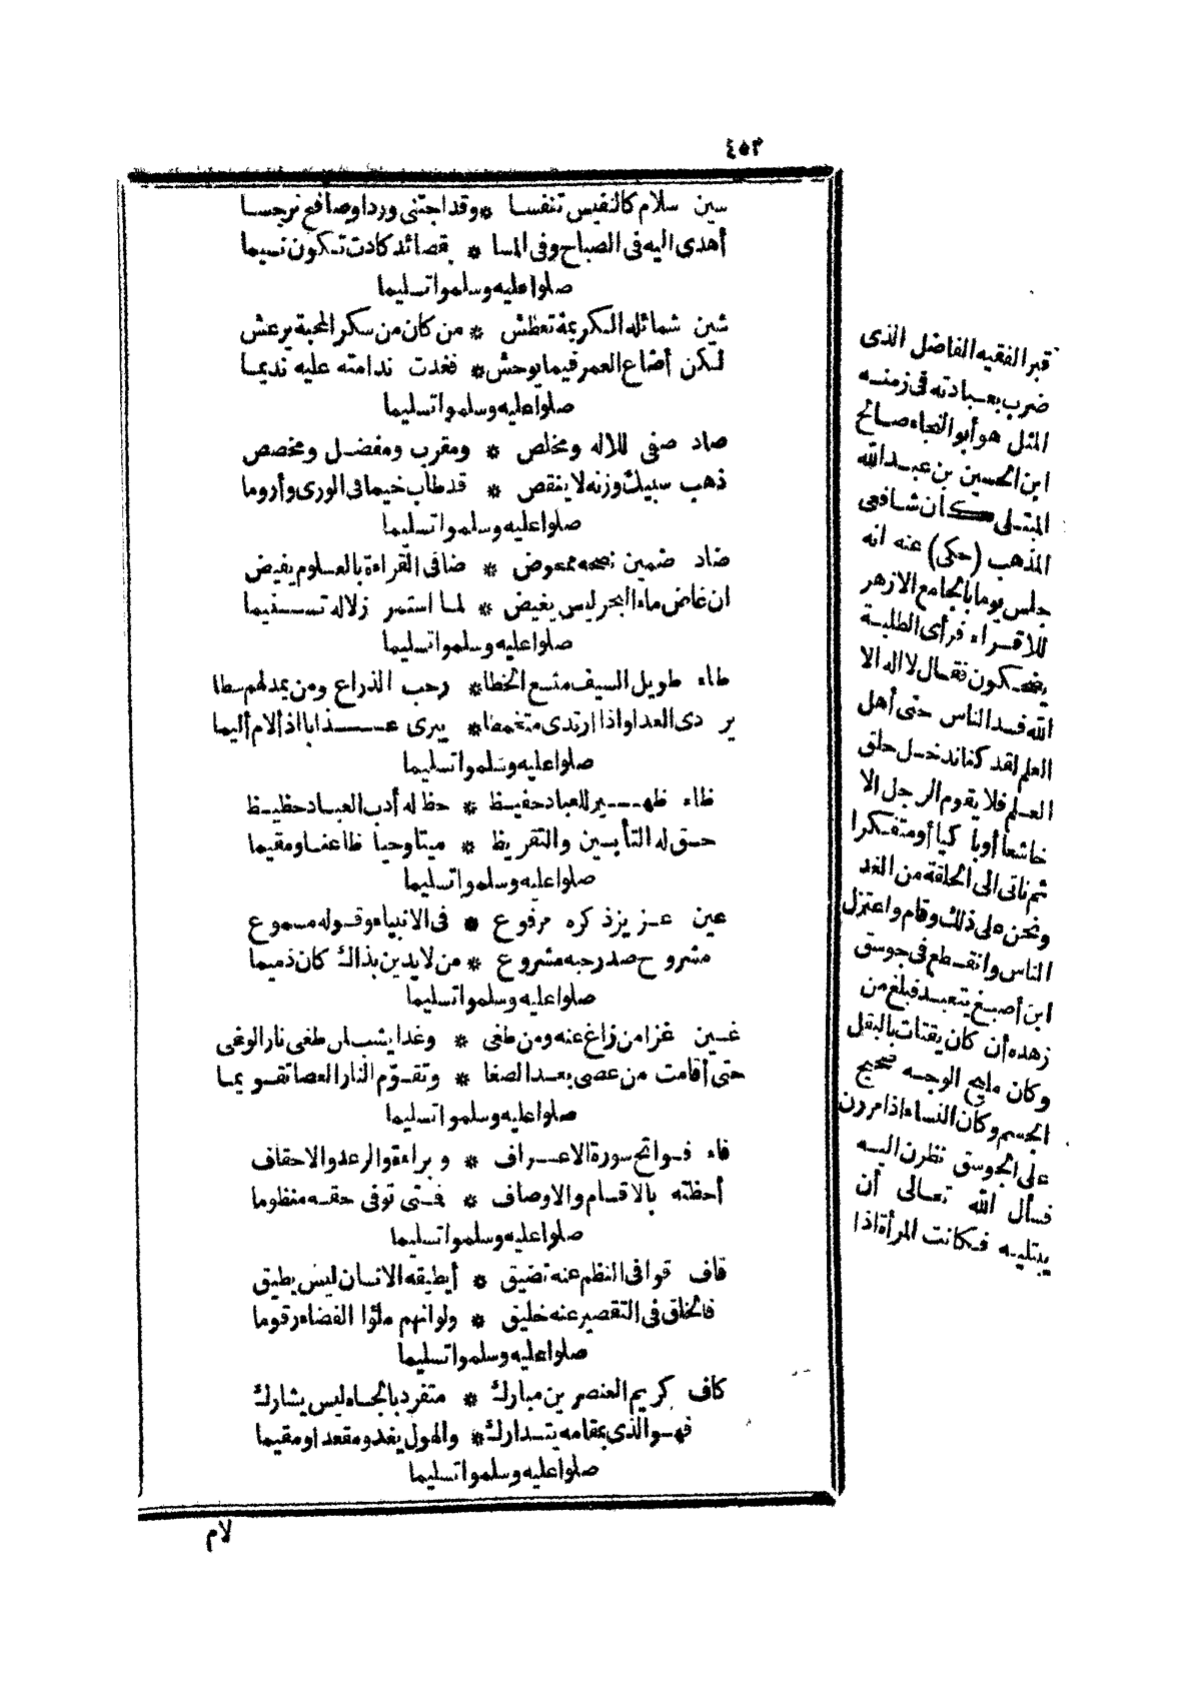 ٤٥٣
سين سلام كالنفيس تنفسا * وقد اجتنى ورد اوصافع نرجسا
أهدى اليه فى الصباح وفى المسا * بقصائد كادت تكون نسيما
صلوا عليه وسلموا تسليما
شين شمائله الكريمة تعطش * من كان من سكر المحبة يرعش
لكن أضاع العمر فيما يوحش * فغدت ندامته عليه نديما
صلوا عليه وسلموا تسليما
صاد صفى للاله ومخلص * ومقرب ومفضل ومخصص
ذهب سبيك وزنه لا ينقص * قد طاب خيما فى الورى وأروما
صلوا عليه وسلموا تسليما
ضاد ضمين نصحه ممحوض * ضافى القراءة بالعلوم يفيض
ان غاض ماء البحر ليس يغيض * لما استمر زلاله تسنيما
صلوا عليه وسلموا تسليما
طاء طويل السيف متسع الخطا * رحب الذراع ومن يمد لهم سطا
يردى العدا واذا ارتدى متخمطا * يبرى عذابا اذ ألام أليما
صلوا عليه وسلموا تسليما
ظاء ظهير للعباد حفيظ * حظ له أدب العباد حظيظ
حق له التأبين والتقريظ * ميتا وحيا ظاعنا ومقيما
صلوا عليه وسلموا تسليما
عين عزيز ذكره مرفوع * فى الانبياء وقوله مسموع
مشروح صدر حبه مشروع * من لا يدين بذاك كان ذميما
صلوا عليه وسلموا تسليما
غين غزا من زاغ عنه ومن طغى * وغدا يشب لمن طغى نار الوغى
حتى أقامت من عصى بعد الصغا * وتقوّم النار العصا تقويما
صلوا عليه وسلموا تسليما
فاء فواتح سورة الاعراف * وبراءة والرعد والاحقاف
أحظته بالاقسام والاوصاف * فمتى توفى حقه منظوما
صلوا عليه وسلموا تسليما
قاف قوافى النظم عنه تضيق * أيطيقه الانسان ليس يطيق
فالخلق فى التقصير عنه خليق * ولو انهم ملؤا الفضاء رقوما
صلوا عليه وسلموا تسليما
كاف كريم العنصرين مبارك * متفرد بالجاه ليس يشارك
فهو الذى بمقامه يتدارك * والهول يغدو مقعدا ومقيما
صلوا عليه وسلموا تسليما
لام
قبر الفقيه الفاضل الذى
ضرب بعبادته فى زمنه
المثل هو أبو النجاء صالح
ابن الحسين بن عبد الله
المبتلى كان شافعى
المذهب (حكى) عنه انه
جلس يوما بالجامع الازهر
للاقراء فرأى الطلبة
يضحكون فقال لا اله الا
الله فسد الناس حتى أهل
العلم لقد كنا ندخل حلق
العلم فلا يقوم الرجل الا
خاشعا أو باكيا أو متفكرا
ثم ناتى الى الحلقة من الغد
ونحن على ذلك وقام واعتزل
الناس وانقطع فى جوسق
ابن أصبغ يتعبد فبلغ من
زهده أن كان يقتات بالبقل
وكان مليح الوجه صحيح
الجسم وكان النساء اذا مررن
على الجوسق نظرن اليه
فسأل الله تعالى أن
يبتليه فكانت المرأة اذا